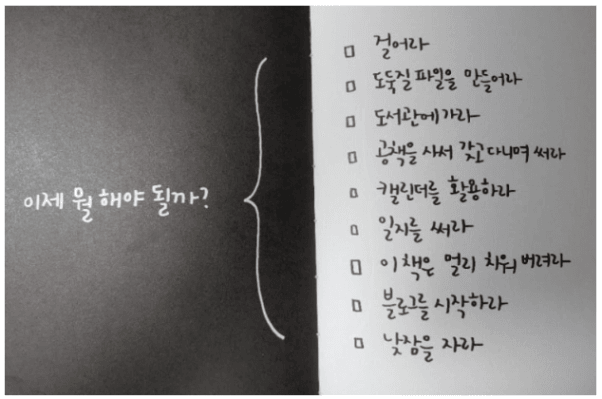 이제 뭘 해야 될까?
걸어라
도둑질 파일을 만들어라
도서관에 가라
공책을 사서 갖고 다니며 써라
캘린더를 활용하라
일지를 써라
이 책은 멀리 치워 버려라
블로그를 시작하라
낮잠을 자라